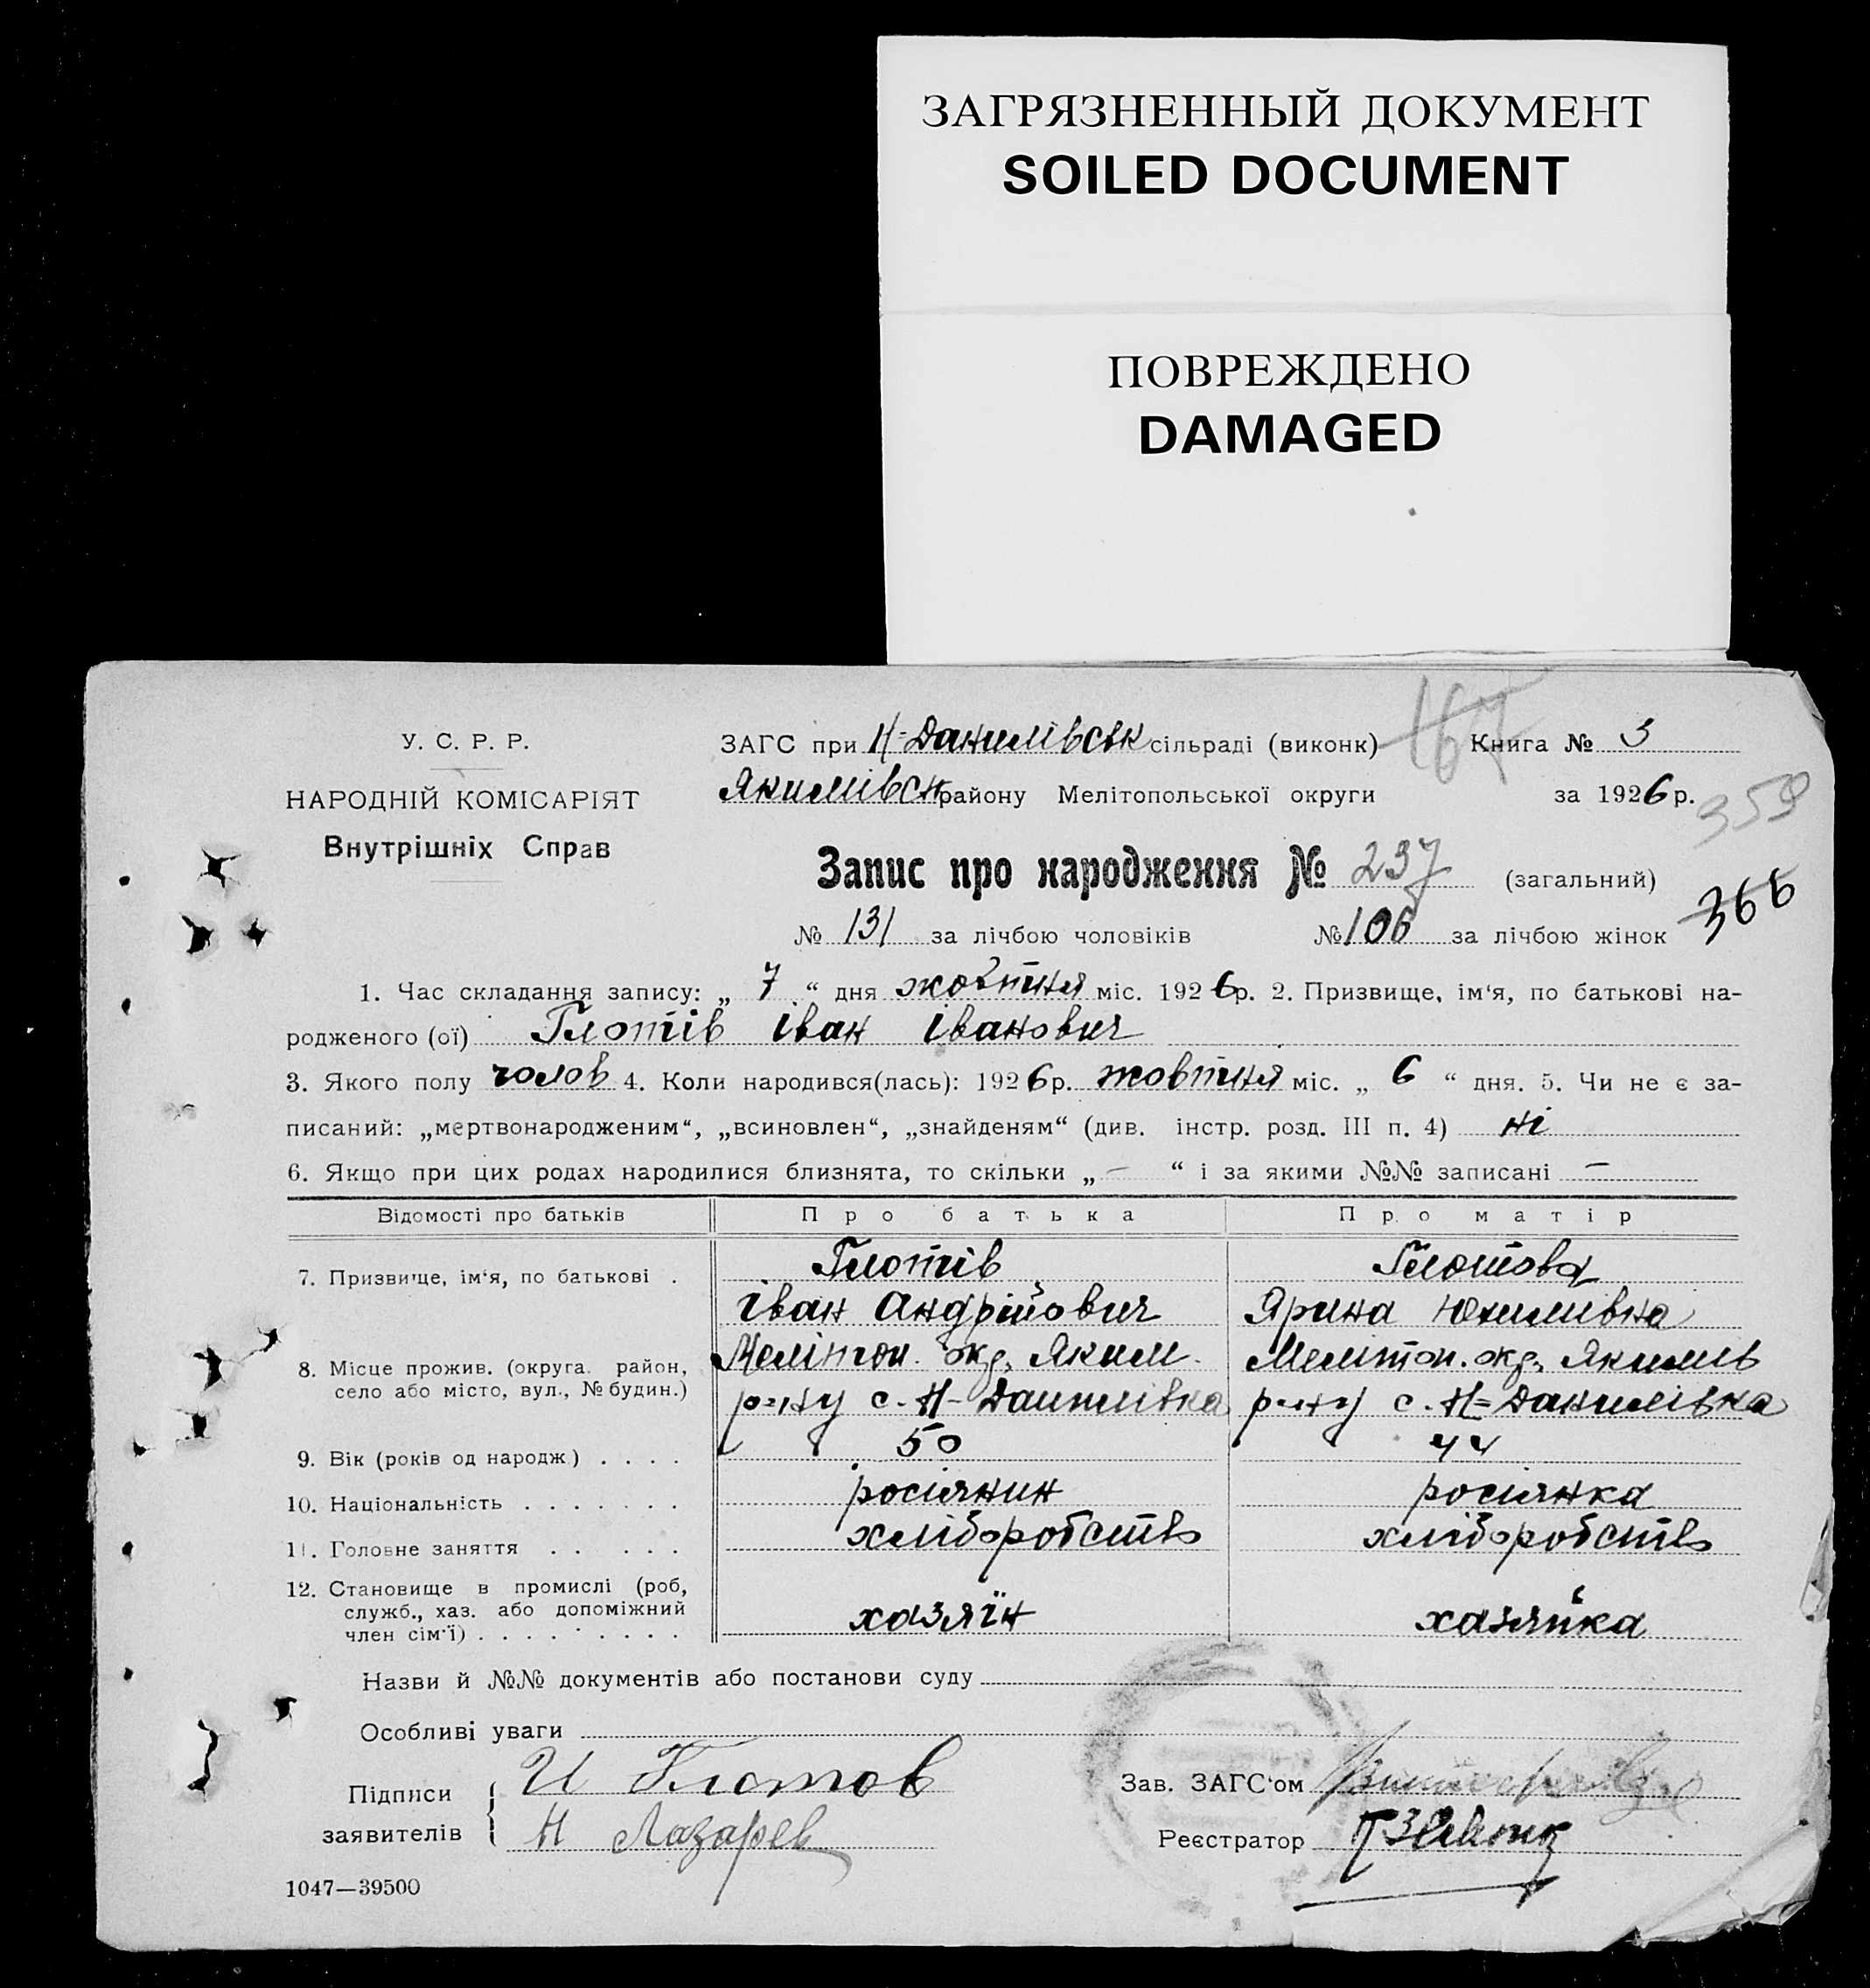 ЗАГРЯЗНЕННЫЙ ДОКУМЕНТ
SOILED DOCUMENT
ПОВРЕЖДЕНО
DAMAGED
У. С. Р. Р.
НАРОДНІЙ КОМІСАРІЯТ
Внутрішніх Справ
167
ЗАГС при Н-Данилівськ сільраді (виконк) Книга № 3
Якимівськ району Мелітопольської округи за 1926 р.
359
Запис про народження № 237 (загальний)
366
№ 131 за лічбою чоловіків № 106 за лічбою жінок
1. Час складання запису: „ 7 “ дня жовтня міс. 1926 р. 2. Призвище, ім‘я, по батькові на-
родженого (ої) Глотів Іван Іванович
3. Якого полу чолов 4. Коли народився(лась): 1926 р. жовтня міс. „ 6 “ дня. 5. Чи не є за-
писаний: „мертвонародженим“, „всиновлен“, „знайденям“ (див. інстр. розд. III п. 4) ні
6. Якщо при цих родах народилися близнята, то скільки „ — “ і за якими №№ записані —
Відомості про батьків Про батька Про матір
7. Призвище, ім‘я, по батькові . Глотів Глотова
Іван Андрійович Ярина Юхимівна
8. Місце прожив. (округа. район, Меліптоп. окр. Яким. Мелітоп. окр. Якимів
село або місто, вул., № будин.) р-ну с. Н-Данилівка р-ну с. Н-Данилівка
9. Вік (років од народж) . . . . 50 44
10. Національність . . . . . . . росіянин росіянка
11. Головне заняття . . . . . хліборобств хліборобств
12. Становище в промислі (роб,
служб., хаз. або допоміжний хазяїн хазяйка
член сім‘ї) . . . . . . . . .
Назви й №№ документів або постанови суду
Особливі уваги
Підписи И Глотов Зав. ЗАГС‘ом
заявителів Н Лазарев Реєстратор
1047—39500